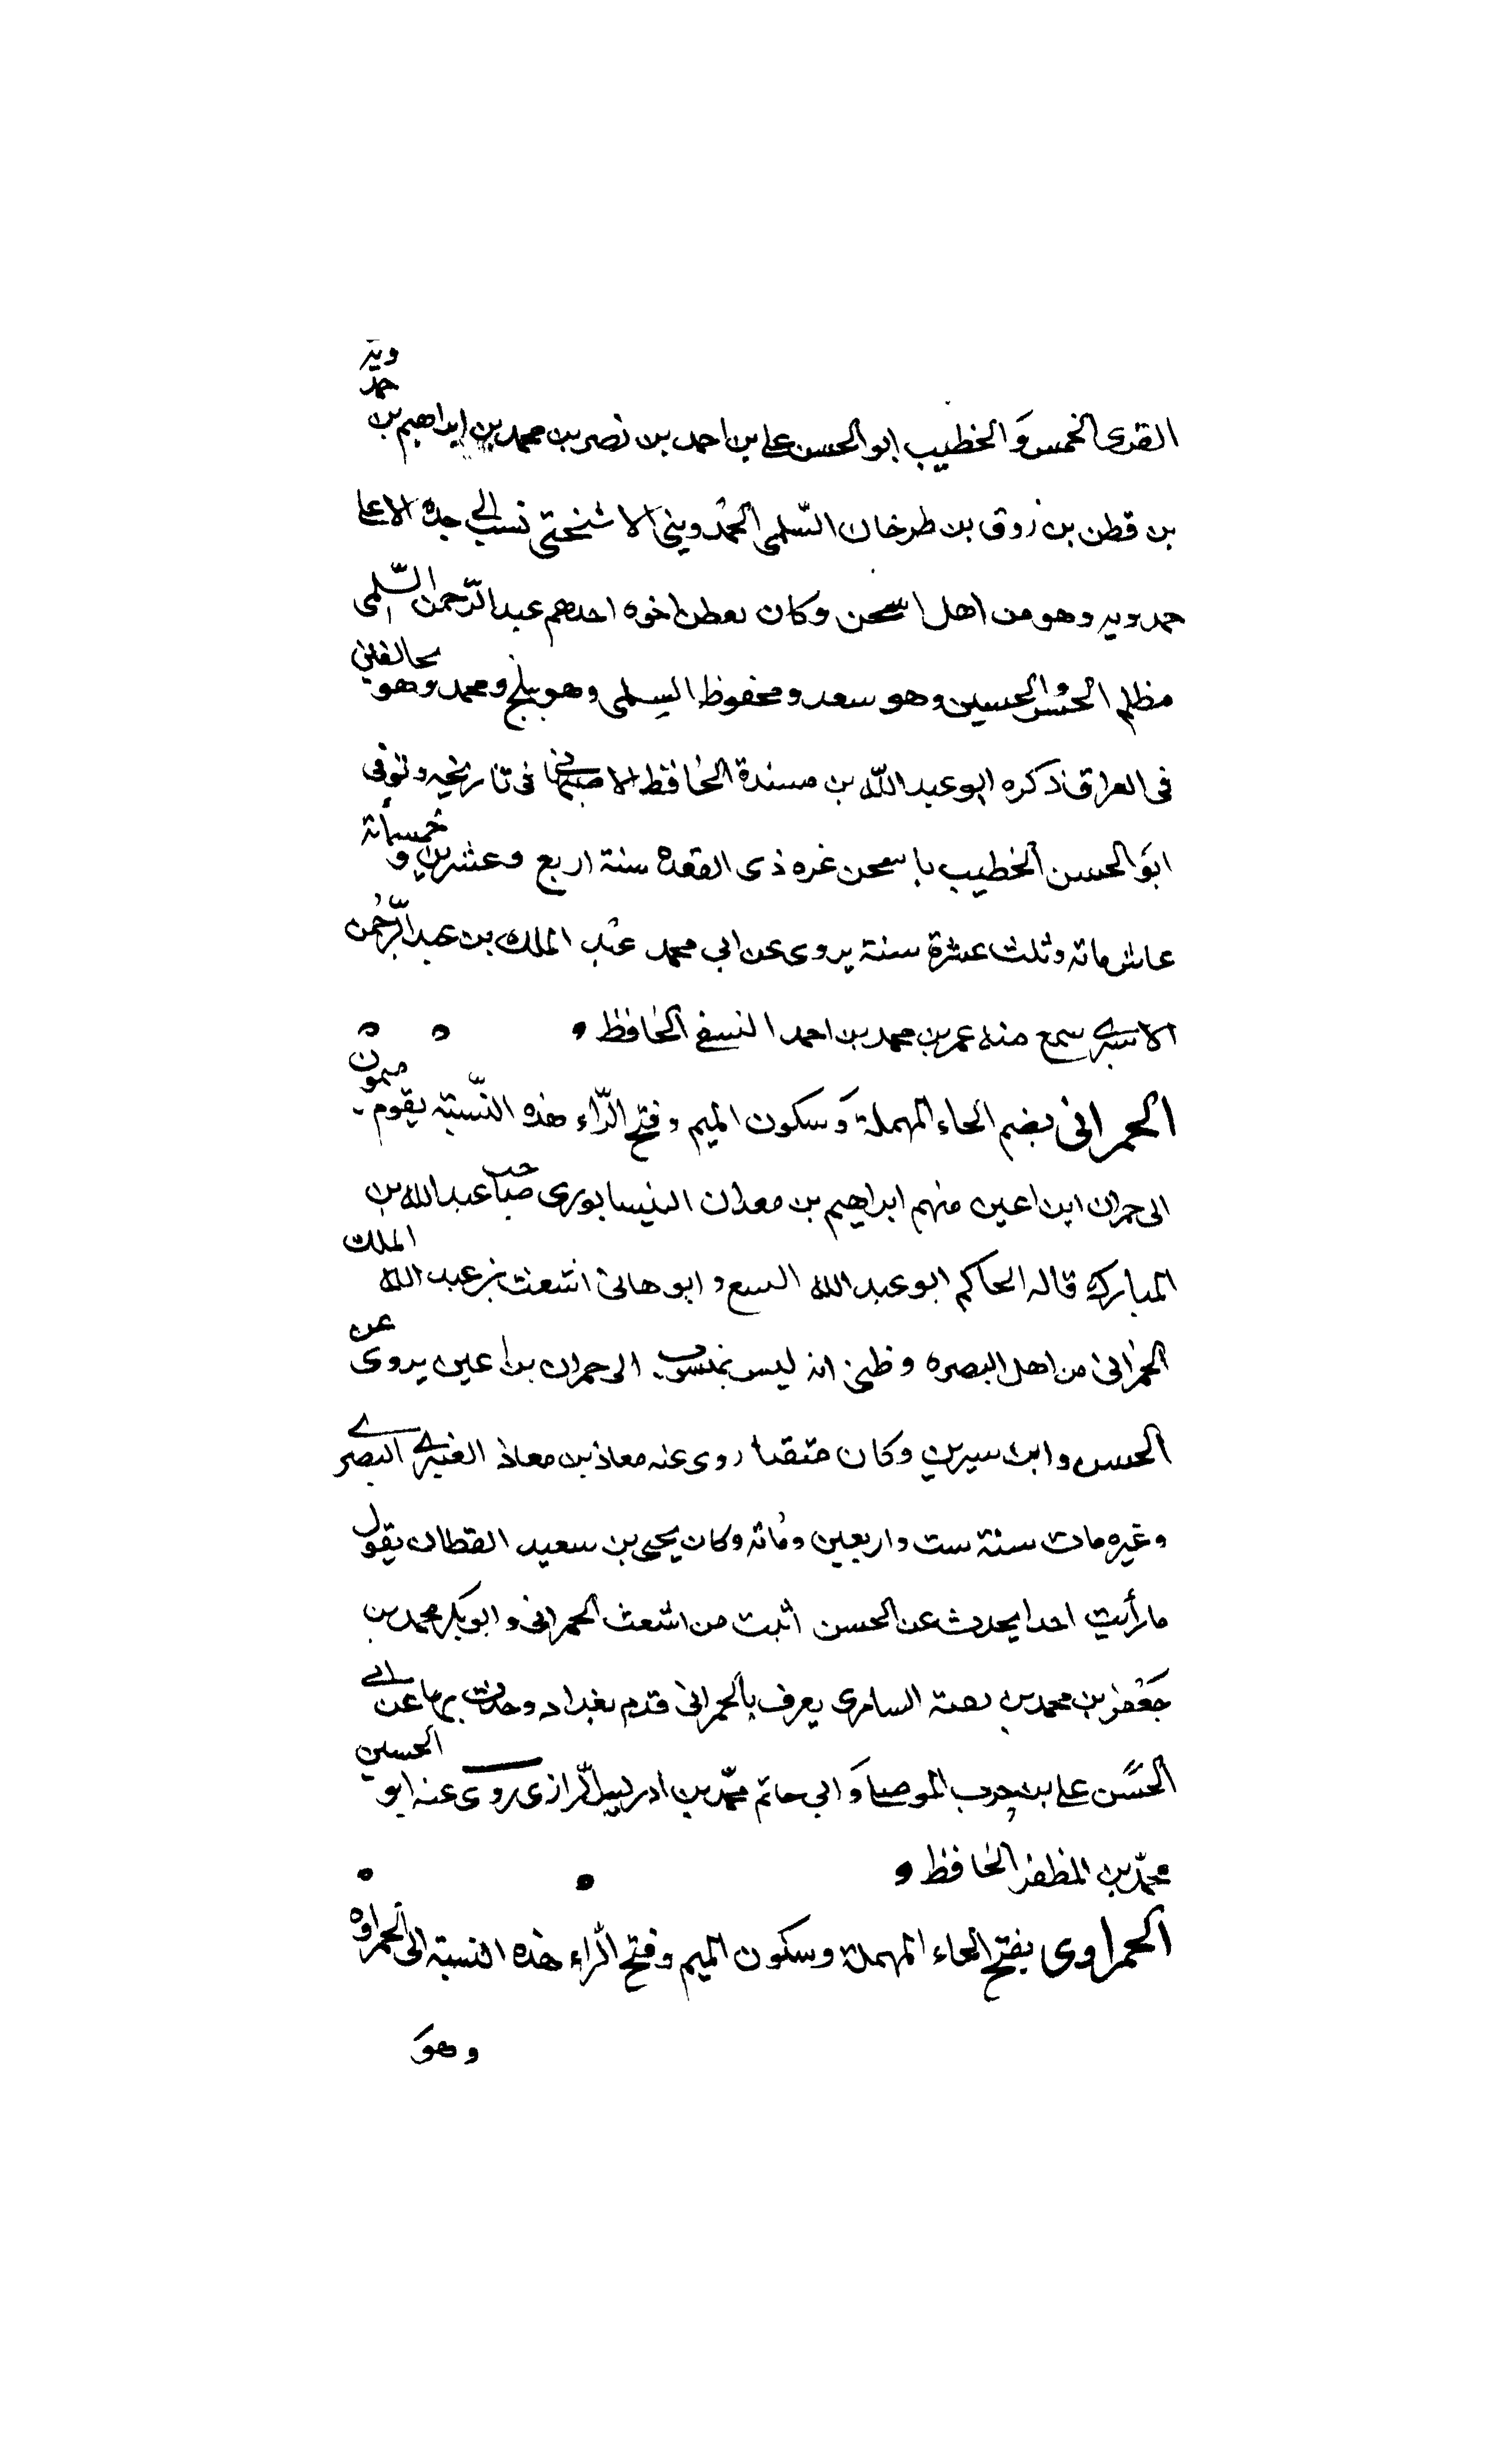 القرى الخمس والخطيب ابو الحسن على بن احمد بن نصر بن محمد بن ابراهيم بن حمدويه
بن قطن بن زوق بن طرخان السّلمى الحمدوينى الاشتيخنى نسب الى جده الاعلى
حمدويه وهو من اهل اسحن وكان لقطن اخوه احدهم عبد الرّحمن السّلمى
مظلم الحسن والحسين وهو سعد ومحفوظ السلمى وهو ببلخ ومحمد وهو
فى العراق ذكره ابو عبد اللّه بن مسندة الحافظ الاصبهانى فى تاريخه وتوفى
ابو الحسن الخطيب باسحن غره ذى القعده سنة اربع وعشرين وخمسمأة
عاش مائه وثلث عشرة سنة يروى عن ابي محمد عبد الملك بن عبد الرّحمن
سمع منه عمر بن محمد بن احمد النسفي الحافظ ٥
الحمرانى بضم الحاء المهملة وسكون الميم وفتح الرّاء هذه النّسبة يقوم ميمون
الى حمران ابن اعين منهم ابراهيم بن معدان النيسابورى صاحب عبد الله بن
المبارك قاله الحاكم ابو عبد الله البيع وابو هانى اشعث بن عبد الملك
الحمرانى من اهل البصره وظنى انه ليس بمنسوب الى حمران بن اعين يروى عن
الحسن وابن سيرين وكان متقنا روى عنه معاذ بن معاذ العنبرى البصرى
وغيره مات سنة ست واربعين ومائه وكان يحيى بن سعيد القطان يقول
ما رأيت احدا يحدث عن الحسن اثبت من اشعث الحمرانى وابو بكر محمد بن
جعفر بن محمد بن بقية السامرى يعرف بالحمرانى قدم بغداد وحدث بها عن ابي
الحسن على بن حرب الموصلى وابي حاتم محمّد بن ادريس الرازى روى عنه ابو الحسين
محمّد بن المظفر الحافظ ٥
الحمراوى بفتح الحاء المهملة وسكون الميم وفتح الراء هذه النسبة الى الحمراوه
وهو